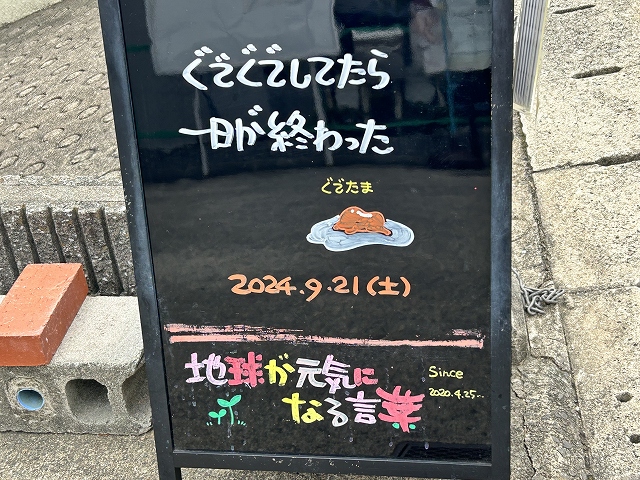 ぐでぐでしてたら
一日が終わった
ぐでたま
2024.9.21(土)
地球が元気に
なる言葉
Since
2020.4.25~